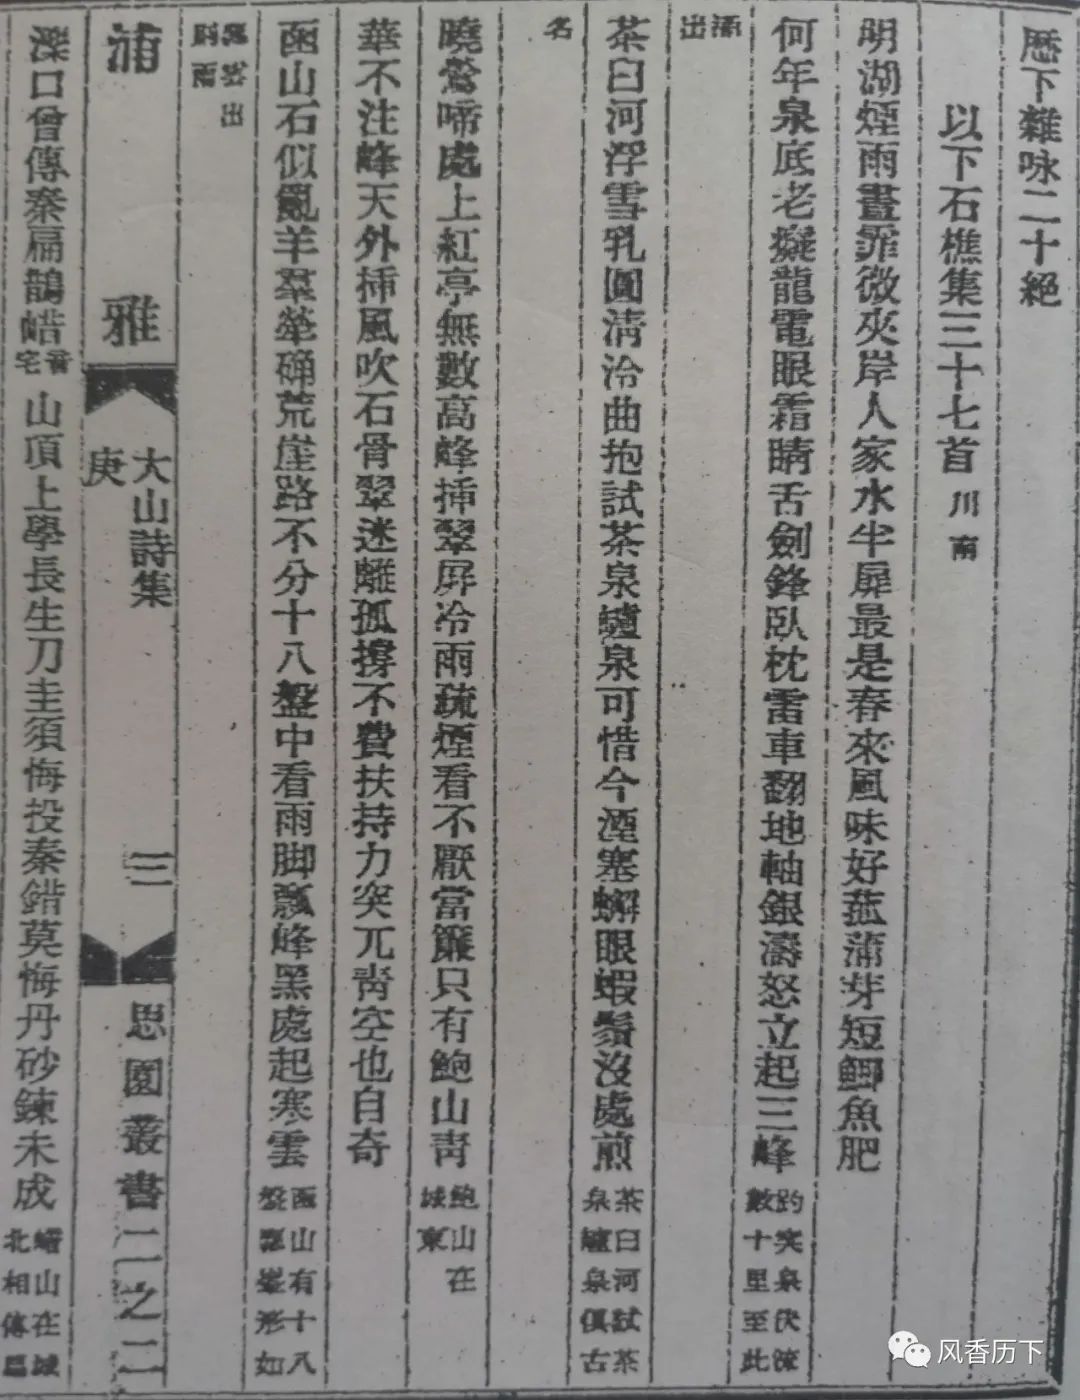 歷下雜咏二十絕
以下石樵集三十七首 川南
明湖煙雨晝霏微夾岸人家水半扉最是春來風味好菰蒲芽短鯽魚肥
何年泉底老癡龍電眼霜睛舌劍鋒臥枕雷車翻地軸銀濤怒立起三峰 趵突泉伏流數十里至此
湧出
茶臼河浮雪乳圓淸泠曲抱試茶泉爐泉可惜今湮塞蠏眼蝦鬚沒處煎 茶臼河試茶泉爐泉俱古
名
曉鶯啼處上紅亭無數高峰揷翠屏冷雨疏煙看不厭當簾只有鮑山靑 鮑山在城東
華不注峰天外揷風吹石骨翠迷離孤撐不費扶持力突兀靑空也自奇
函山石似亂羊羣犖确荒崖路不分十八盤中看雨脚瓢峰黑處起寒雲 函山有十八盤瓢峯形如
瓢雲出則雨
浦雅 大山詩集 庚 三 思園叢書二之二
濼口曾傳秦扁鵲嶗 山頂上學長生刀圭須悔投秦錯莫悔丹砂鍊未成 山在城北相傳扁
风香历下